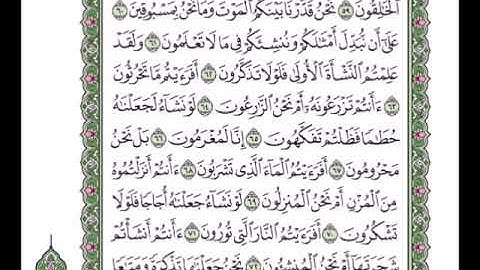 ٱلۡخَٰلِقُونَ ٥٩ نَحۡنُ قَدَّرۡنَا بَيۡنَكُمُ ٱلۡمَوۡتَ وَمَا نَحۡنُ بِمَسۡبُوقِينَ ٦٠
عَلَىٰٓ أَن نُّبَدِّلَ أَمۡثَٰلَكُمۡ وَنُنشِئَكُمۡ فِي مَا لَا تَعۡلَمُونَ ٦١ وَلَقَدۡ
عَلِمۡتُمُ ٱلنَّشۡأَةَ ٱلۡأُولَىٰ فَلَوۡلَا تَذَكَّرُونَ ٦٢ أَفَرَءَيۡتُم مَّا تَحۡرُثُونَ
٦٣ ءَأَنتُمۡ تَزۡرَعُونَهُۥٓ أَمۡ نَحۡنُ ٱلزَّٰرِعُونَ ٦٤ لَوۡ نَشَآءُ لَجَعَلۡنَٰهُ
حُطَٰمٗا فَظَلۡتُمۡ تَفَكَّهُونَ ٦٥ إِنَّا لَمُغۡرَمُونَ ٦٦ بَلۡ نَحۡنُ
مَحۡرُومُونَ ٦٧ أَفَرَءَيۡتُمُ ٱلۡمَآءَ ٱلَّذِي تَشۡرَبُونَ ٦٨ ءَأَنتُمۡ أَنزَلۡتُمُوهُ
مِنَ ٱلۡمُزۡنِ أَمۡ نَحۡنُ ٱلۡمُنزِلُونَ ٦٩ لَوۡ نَشَآءُ جَعَلۡنَٰهُ أُجَاجٗا فَلَوۡلَا
تَشۡكُرُونَ ٧٠ أَفَرَءَيۡتُمُ ٱلنَّارَ ٱلَّتِي تُورُونَ ٧١ ءَأَنتُمۡ أَنشَأۡتُمۡ
شَجَرَتَهَآ أَمۡ نَحۡنُ ٱلۡمُنشِـُٔونَ ٧٢ نَحۡنُ جَعَلۡنَٰهَا تَذۡكِرَةٗ وَمَتَٰعٗا